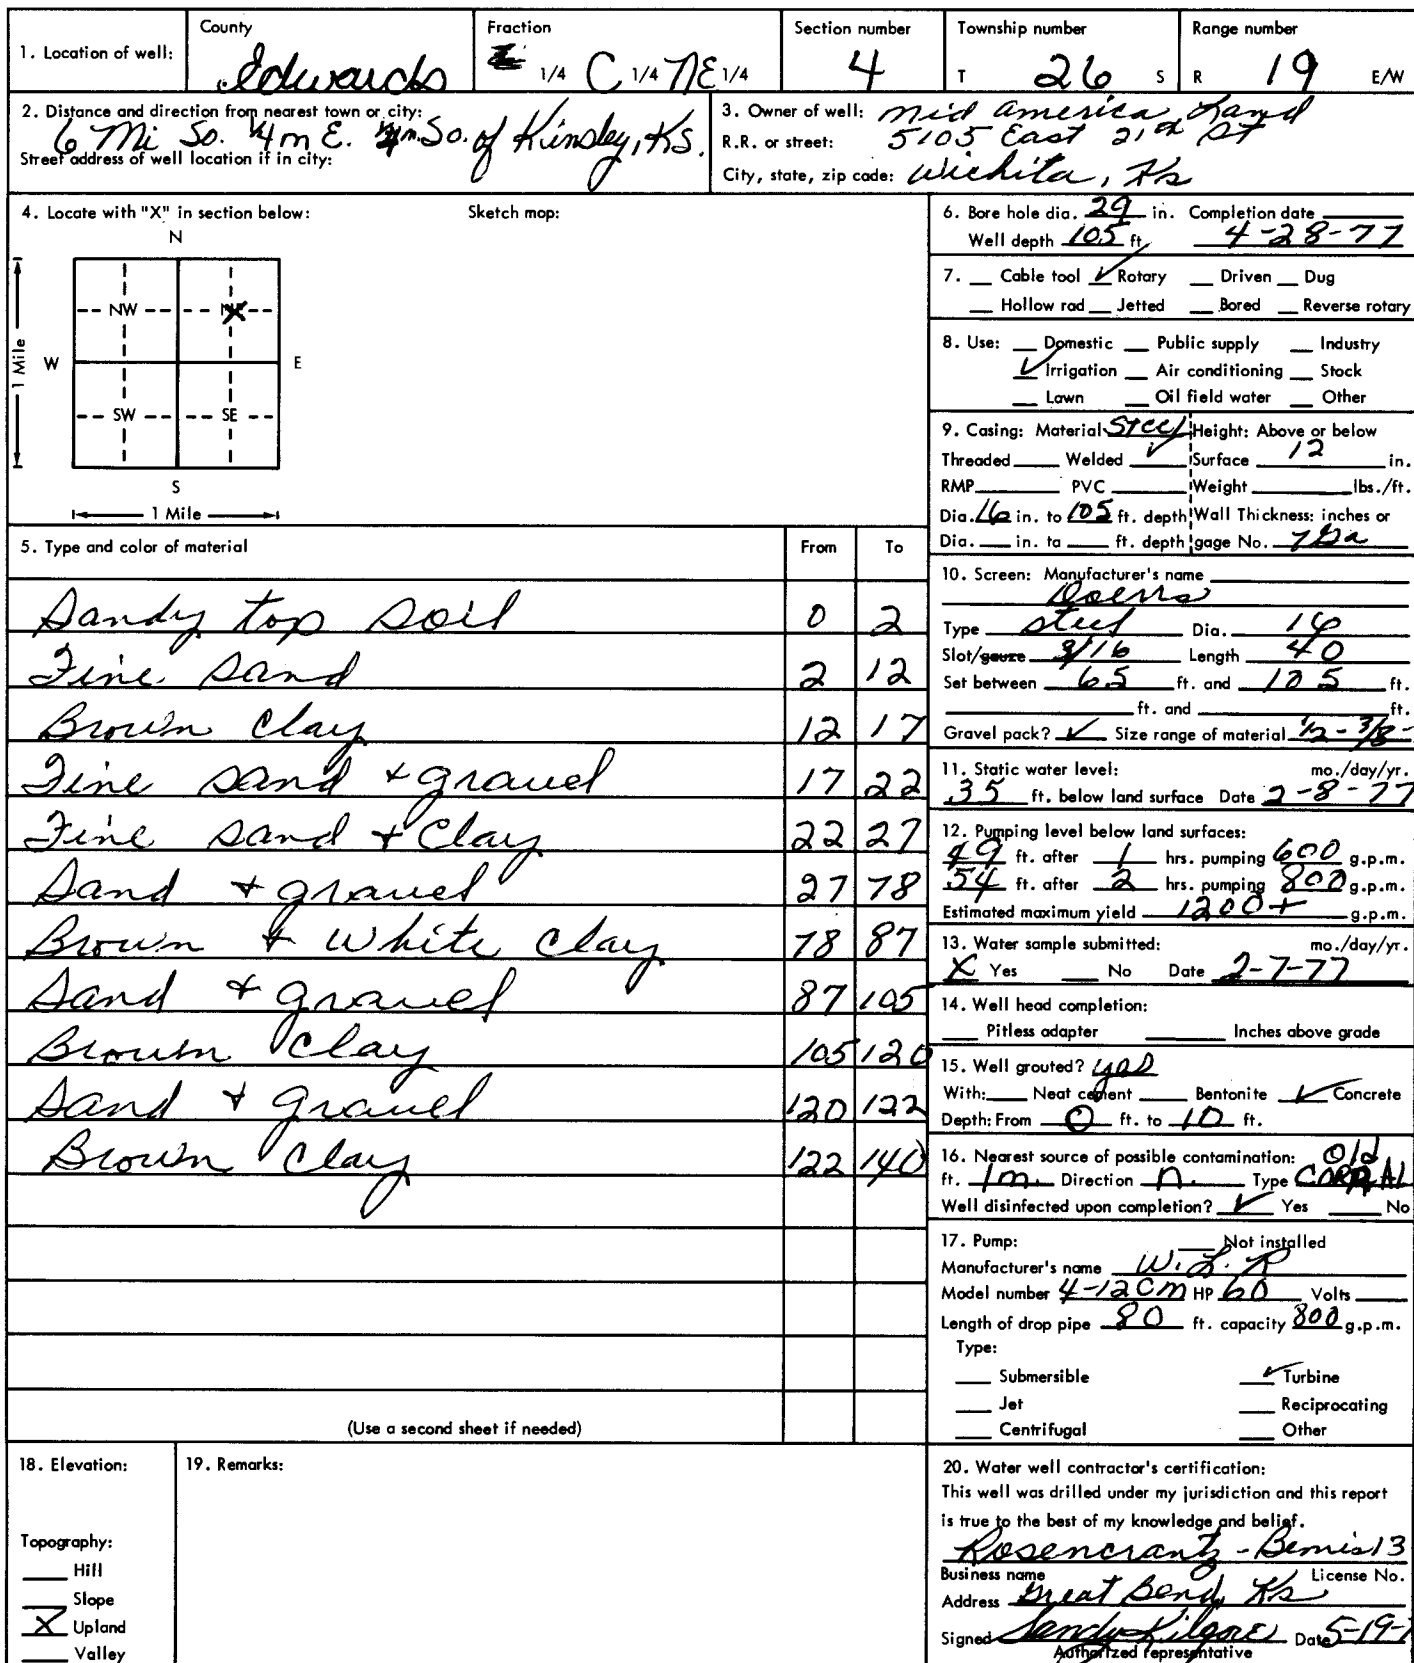 1. Location of well: County Edwards Fraction 1/4 C 1/4 NE 1/4 Section number 4 Township number T 26 S Range number R 19 E/W
2. Distance and direction from nearest town or city:
6 Mi So. 1/4 m E. 1/4 m. So. of Kinsley, KS.
Street address of well location if in city:
3. Owner of well: Mid America Land
R.R. or street: 5105 East 21st St
City, state, zip code: Wichita, Ks
4. Locate with "X" in section below: Sketch map:
N
NW NE
W E
SW SE
S
1 Mile
1 Mile
5. Type and color of material From To
Sandy top soil 0 2
Fine sand 2 12
Brown clay 12 17
Fine sand + gravel 17 22
Fine sand + Clay 22 27
Sand + gravel 27 78
Brown + White Clay 78 87
Sand + gravel 87 105
Brown Clay 105 120
Sand + gravel 120 122
Brown Clay 122 140
(Use a second sheet if needed)
6. Bore hole dia. 29 in. Completion date
Well depth 105 ft. 4-28-77
7. Cable tool ✓ Rotary Driven Dug
Hollow rod Jetted Bored Reverse rotary
8. Use: Domestic Public supply Industry
✓ Irrigation Air conditioning Stock
Lawn Oil field water Other
9. Casing: Material Steel Height: Above or below
Threaded Welded ✓ Surface 12 in.
RMP PVC Weight lbs./ft.
Dia. 16 in. to 105 ft. depth Wall Thickness: inches or
Dia. in. to ft. depth gage No. 7 Ga
10. Screen: Manufacturer's name
Doerrs
Type steel Dia. 16
Slot/gauze 3/16 Length 40
Set between 65 ft. and 105 ft.
ft. and ft.
Gravel pack? ✓ Size range of material 1/2 - 3/8 -
11. Static water level: mo./day/yr.
35 ft. below land surface Date 2-8-77
12. Pumping level below land surfaces:
49 ft. after 1 hrs. pumping 600 g.p.m.
54 ft. after 2 hrs. pumping 800 g.p.m.
Estimated maximum yield 1200+ g.p.m.
13. Water sample submitted: mo./day/yr.
X Yes No Date 2-7-77
14. Well head completion:
Pitless adapter Inches above grade
15. Well grouted? yes
With: Neat cement Bentonite ✓ Concrete
Depth: From 0 ft. to 10 ft.
16. Nearest source of possible contamination: Old
ft. 1 m. Direction n. Type CORRAL
Well disinfected upon completion? ✓ Yes No
17. Pump: Not installed
Manufacturer's name W.L.R
Model number 4-12CM HP 60 Volts
Length of drop pipe 80 ft. capacity 800 g.p.m.
Type:
Submersible ✓ Turbine
Jet Reciprocating
Centrifugal Other
18. Elevation:
Topography:
Hill
Slope
X Upland
Valley
19. Remarks:
20. Water well contractor's certification:
This well was drilled under my jurisdiction and this report
is true to the best of my knowledge and belief.
Rosencrantz-Bemis 13
Business name License No.
Address Great Bend, Ks
Signed Sandy Kilgore Date 5-19-7
Authorized representative